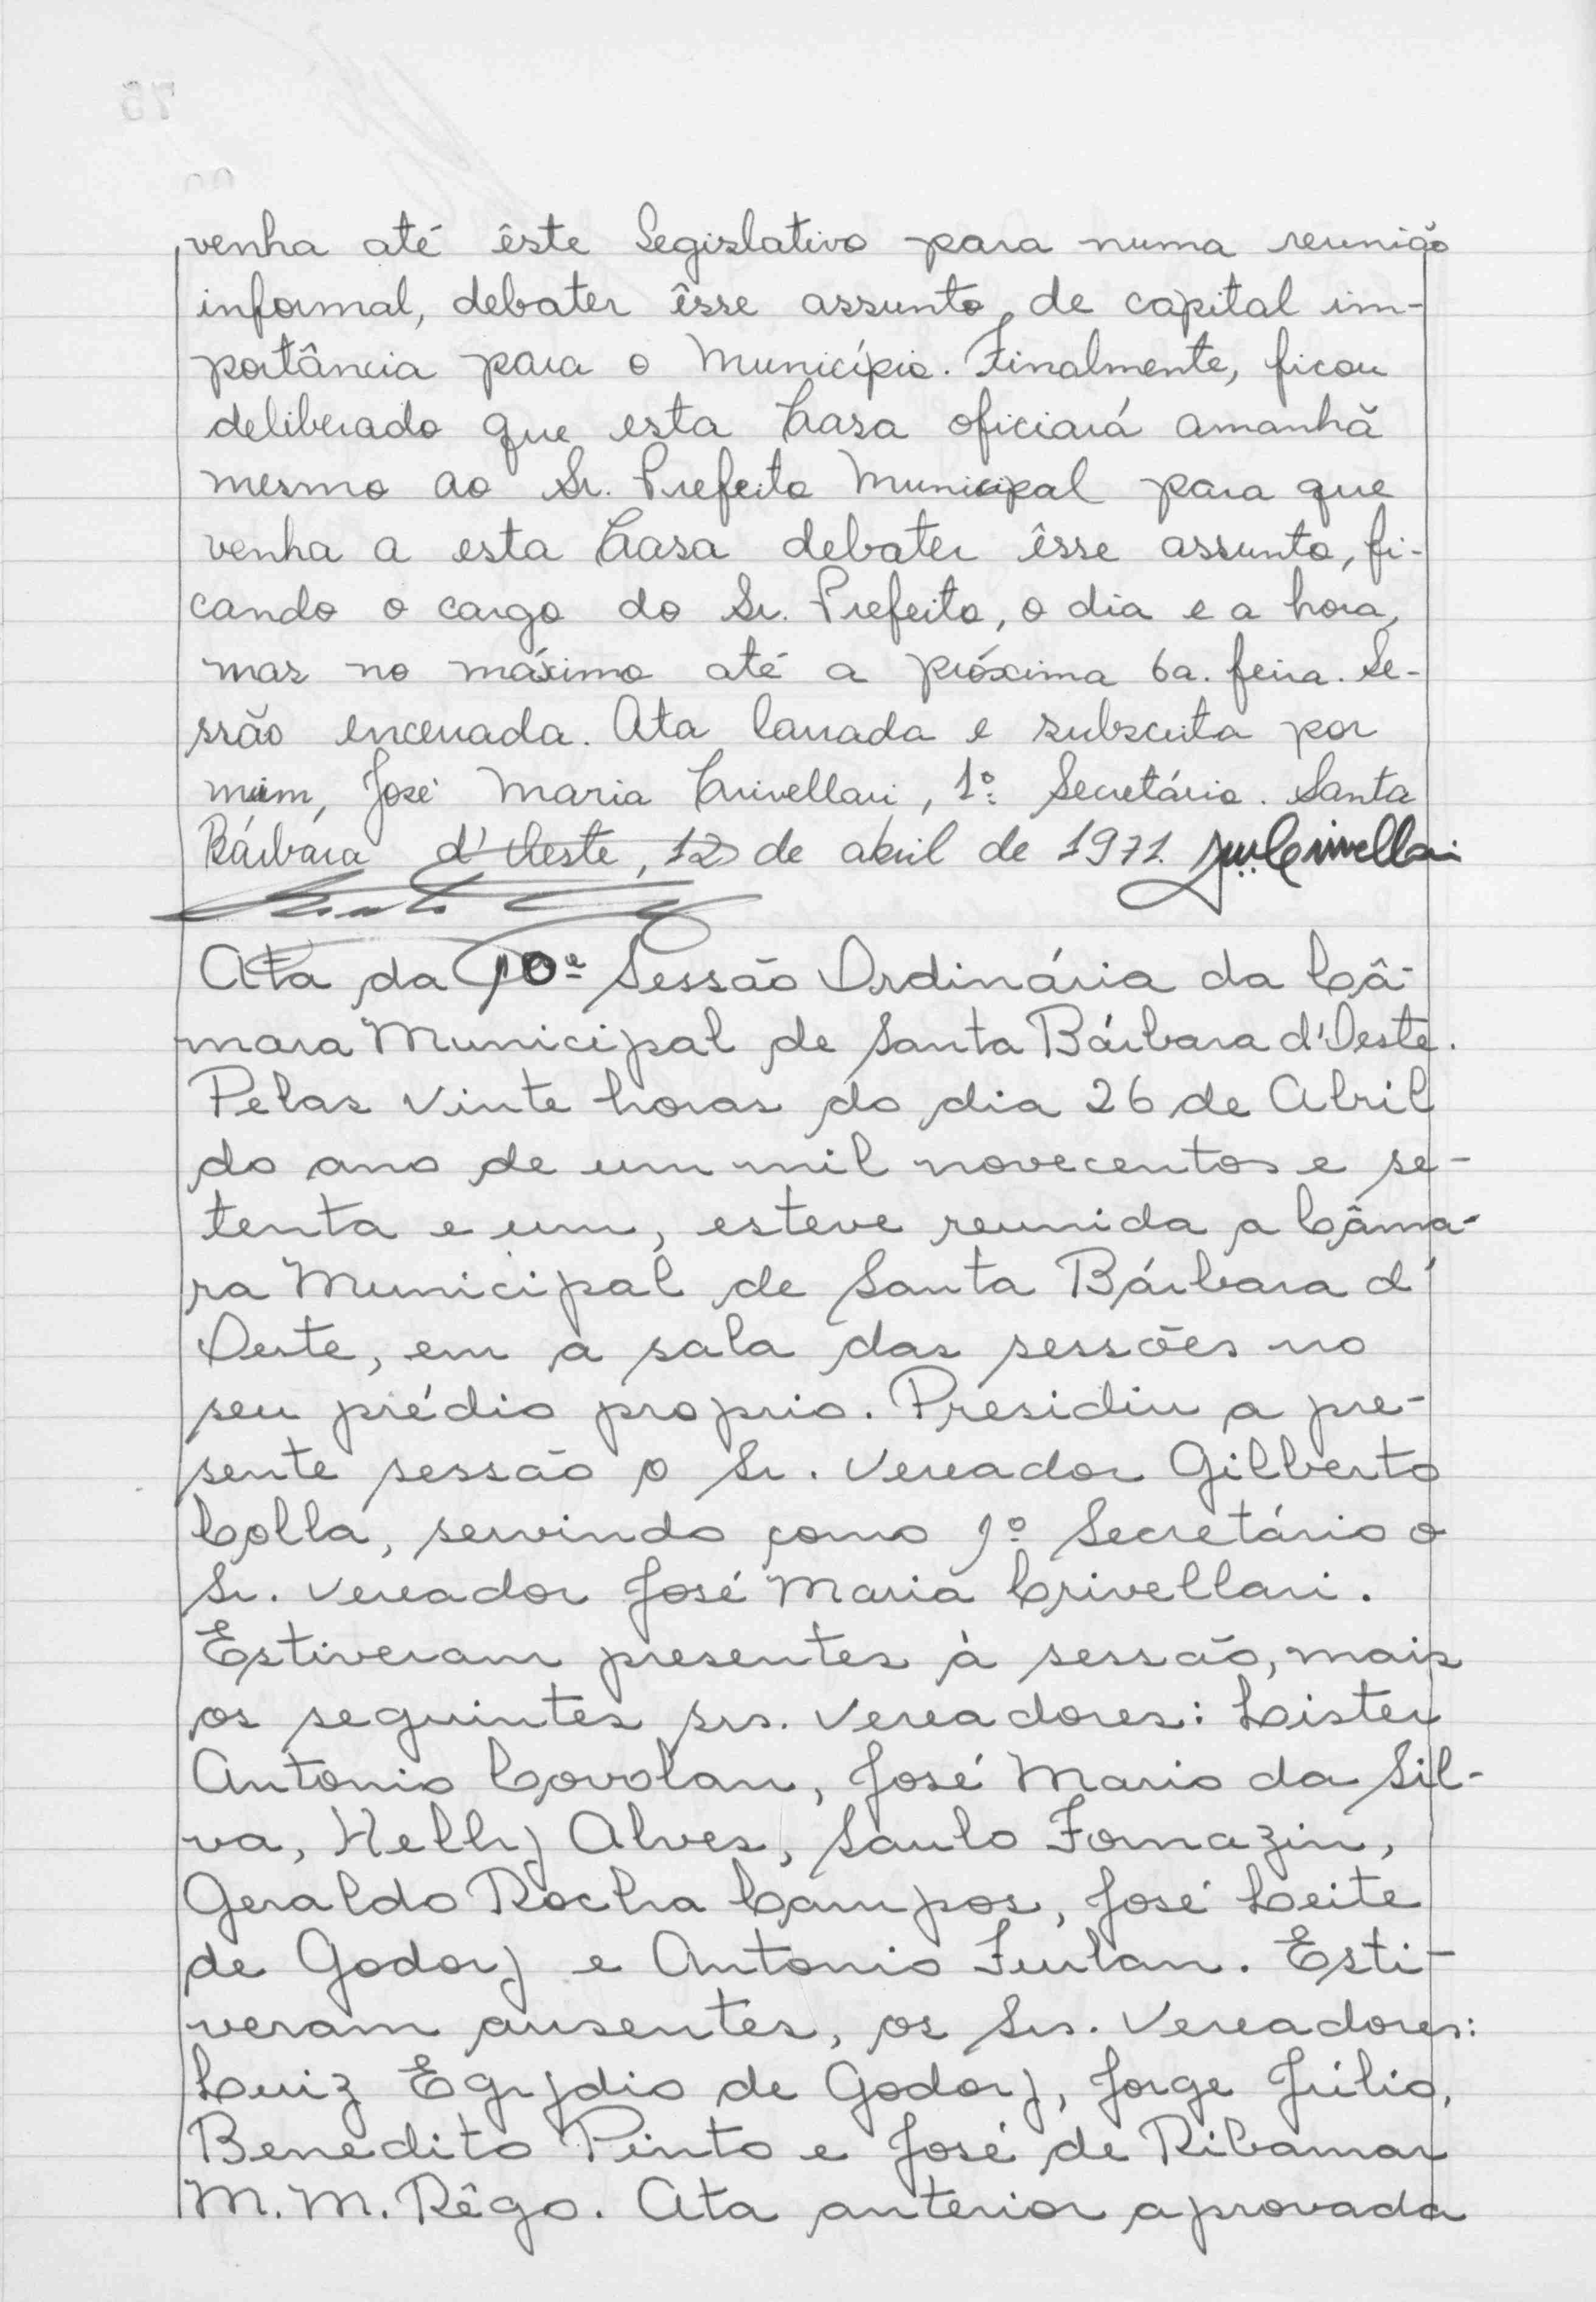 venha até êste Legislativo para numa reunião
informal, debater êsse assunto de capital im-
portância para o Município. Finalmente, ficou
deliberado que esta Casa oficiará amanhã
mesmo ao Sr. Prefeito Municipal para que
venha a esta Casa debater êsse assunto, fi-
cando o cargo do Sr. Prefeito, o dia e a hora,
mas no máximo até a próxima 6a. feira. Se-
ssão encerrada. Ata lavrada e subscrita por
mim, José Maria Crivellari, 1º Secretário. Santa
Bárbara d'Oeste, 12 de abril de 1971. JMCrivellari
Ata da 10ª Sessão Ordinária da Câ-
mara Municipal de Santa Bárbara d'Oeste.
Pelas vinte horas do dia 26 de Abril
do ano de um mil novecentos e se-
tenta e um, esteve reunida a Câma-
ra Municipal de Santa Bárbara d'
Oeste, em a sala das sessões no
seu prédio proprio. Presidiu a pre-
sente sessão o Sr. Vereador Gilberto
Colla, servindo como 1º Secretário o
Sr. Vereador José Maria Crivellari.
Estiveram presentes à sessão, mais
os seguintes srs. Vereadores: Lister
Antonio Covolan, José Mario da Sil-
va, Helly Alves, Saulo Fornazin,
Geraldo Rocha Campos, José Leite
de Godoy e Antonio Furlan. Esti-
veram ausentes, os Srs. Vereadores:
Luiz Egydio de Godoy, Jorge Júlio,
Benedito Pinto e José de Ribamar
M. M. Rêgo. Ata anterior aprovada